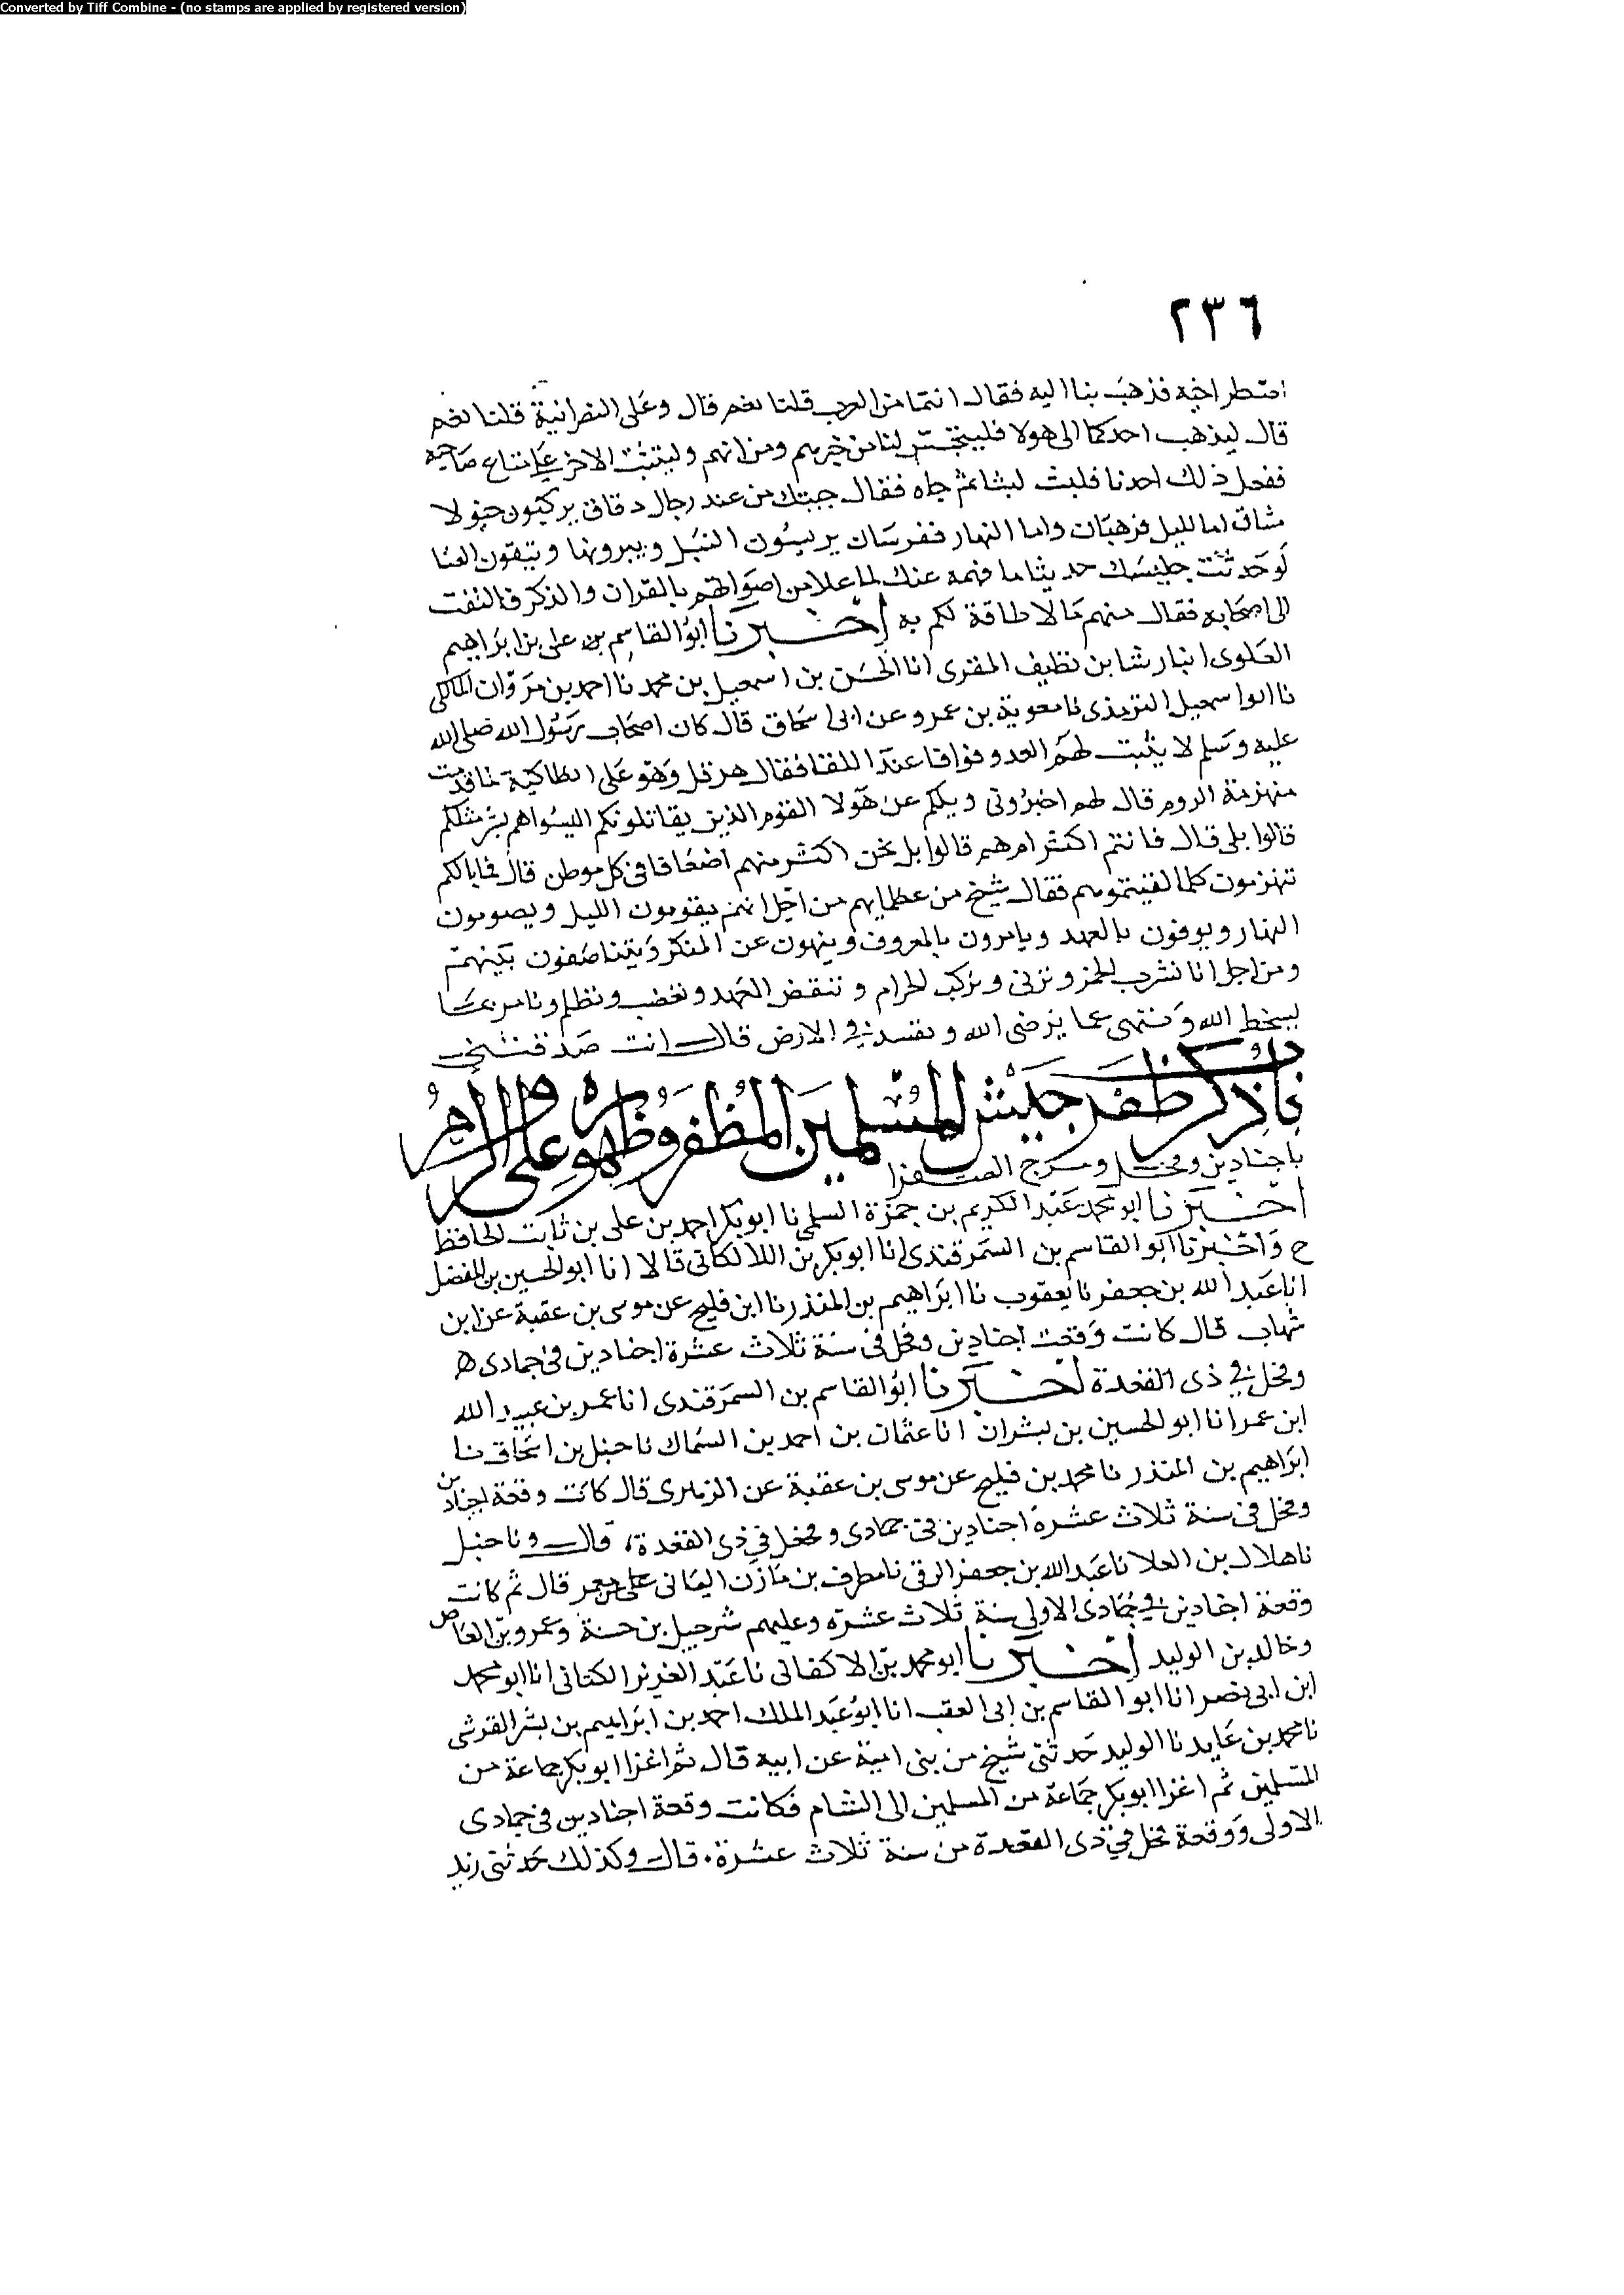 Converted by Tiff Combine - (no stamps are applied by registered version)
٢٣٦
فذهب بنا اليه فقال انتما من العرب قلنا نعم قال وعلى النصرانية قلنا نعم
قال ليذهب احدكما الى هولا فليتجسس لنا من خبرهم ومن انهم وليثبت الاخر على متاع صاحبه
ففعل ذلك احدنا فلبث لبثا ثم جاه فقال جيتك من عند رجال دقاق يركبون خيولا
عتاق اما الليل فرهبان واما النهار ففرسان يريشون النبل ويبرونها ويثقفون القنا
لو حدثت جليسك حديثا ما فهمه عنك لما علا من اصواتهم بالقران والذكر فالتفت
الى اصحابه فقال منهم ما لا طاقة لكم به اخبرنا ابو القاسم بن على بن ابراهيم
العلوى انبا رشا بن نظيف المقرى انا الحسن بن اسمعيل بن محمد نا احمد بن مروان المالكى
نا ابوا سمعيل الترمذى نا معوية بن عمرو عن ابى اسحاق قال كان اصحاب رسول الله صلى الله
عليه وسلم لا يثبت لهم العدو فواقا عند اللقا فقال هرقل وهو على انطاكية لما قدمت
منهزمة الروم قال لهم اخبرونى ويلكم عن هولا القوم الذين يقاتلونكم اليسوا هم بشر مثلكم
قالوا بلى قال فانتم اكثر ام هم قالوا بل نحن اكثر منهم اضعافا فى كل موطن قال فما بالكم
تنهزمون كلما لقيتموهم فقال شيخ من عظمايهم من اجل انهم يقومون الليل ويصومون
النهار ويوفون بالعهد ويامرون بالمعروف وينهون عن المنكر ويتناصفون بينهم
ومن اجل انا نشرب الخمر ونزنى ونركب الحرام وننقض العهد ونغضب ونظلم ونامر بما
يسخط الله وننهى عما يرضى الله ونفسد فى الارض قال انت صدقتنى
باب ذكر ظفر جيش المسلمين المظفر وظهوره على الروم
باجنادين وفحل ومرج الصفر
اخبرنا ابو محمد عبد الكريم بن حمزة السلمى نا ابو بكر احمد بن على بن ثابت الحافظ
ح واخبرنا ابو القاسم بن السمرقندى انا ابو بكر بن اللالكائى قالا انا ابو الحسين بن المفضل
انا عبد الله بن جعفر نا يعقوب نا ابراهيم بن المنذر نا ابن فليح عن موسى بن عقبة عن ابن
شهاب قال كانت وقعت اجنادين وفحل فى سنة ثلاث عشرة اجنادين فى جمادى
وفحل فى ذى القعدة اخبرنا ابو القاسم بن السمرقندى انا عمر بن عبيد الله
ابن عمر انا ابو الحسين بن بشران انا عثمان بن احمد بن السماك نا حنبل بن اسحاق نا
ابراهيم بن المنذر نا محمد بن فليح عن موسى بن عقبة عن الزهرى قال كانت وقعة اجنادين
وفحل فى سنة ثلاث عشرة اجنادين فى جمادى وفحل فى ذى القعدة، قال ونا حنبل
نا هلال بن العلا نا عبد الله بن جعفر الرقى نا مطرف بن مازن اليمانى عن معمر قال ثم كانت
وقعة اجنادين فى جمادى الاولى سنة ثلاث عشرة وعليهم شرحبيل بن حسنة وعمرو بن العاص
وخالد بن الوليد اخبرنا ابو محمد بن الاكفانى نا عبد العزيز الكتانى انا ابو محمد
ابن ابى نصر انا ابو القاسم بن ابى العقب انا ابو عبد الملك احمد بن ابراهيم بن بشر القرشى
نا محمد بن عايد نا الوليد حدثنى شيخ من بنى امية عن ابيه قال ثم اغزا ابو بكر جماعة من
المسلمين ثم اغزا ابو بكر جماعة من المسلمين الى الشام فكانت وقعة اجنادين فى جمادى
الاولى ووقعة فحل فى ذى القعدة من سنة ثلاث عشرة. قال وكذلك حدثنى زيد